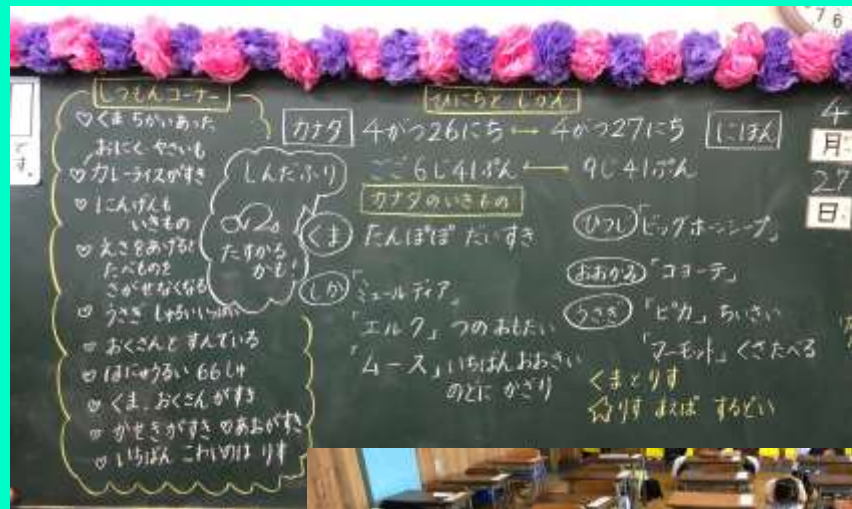 しつもんコーナー
♡くま ちがいあった
おにく やさいも
♡カレーライスがすき
♡にんげんも
いきもの
♡えさをあげると
たべものを
さがせなくなる
♡うさぎ しゅるいいっぱい
♡おくさんと すんでいる
♡ほにゅうるい 66しゅ
♡くま、おくさんがすき
♡かせきがすき ♡あおがすき
♡いちばん こわいのは りす
しんだふり
たすかる
かも!
ひにちと じかん
カナダ 4がつ26にち ↔ 4がつ27にち にほん
ごご 6じ41ぷん ⟷ 9じ41ぷん
カナダのいきもの
くま たんぽぽ だいすき
しか 「ミュールディア」
「エルク」 つの おもたい
「ムース」 いちばんおおきい
のどに かざり
ひつじ 「ビッグホーンシープ」
おおかみ 「コヨーテ」
うさぎ 「ピカ」 ちいさい
「マーモット」 くさたべる
くまとりす
☆りす まえば するどい
4
月
27
日
です。
7 6